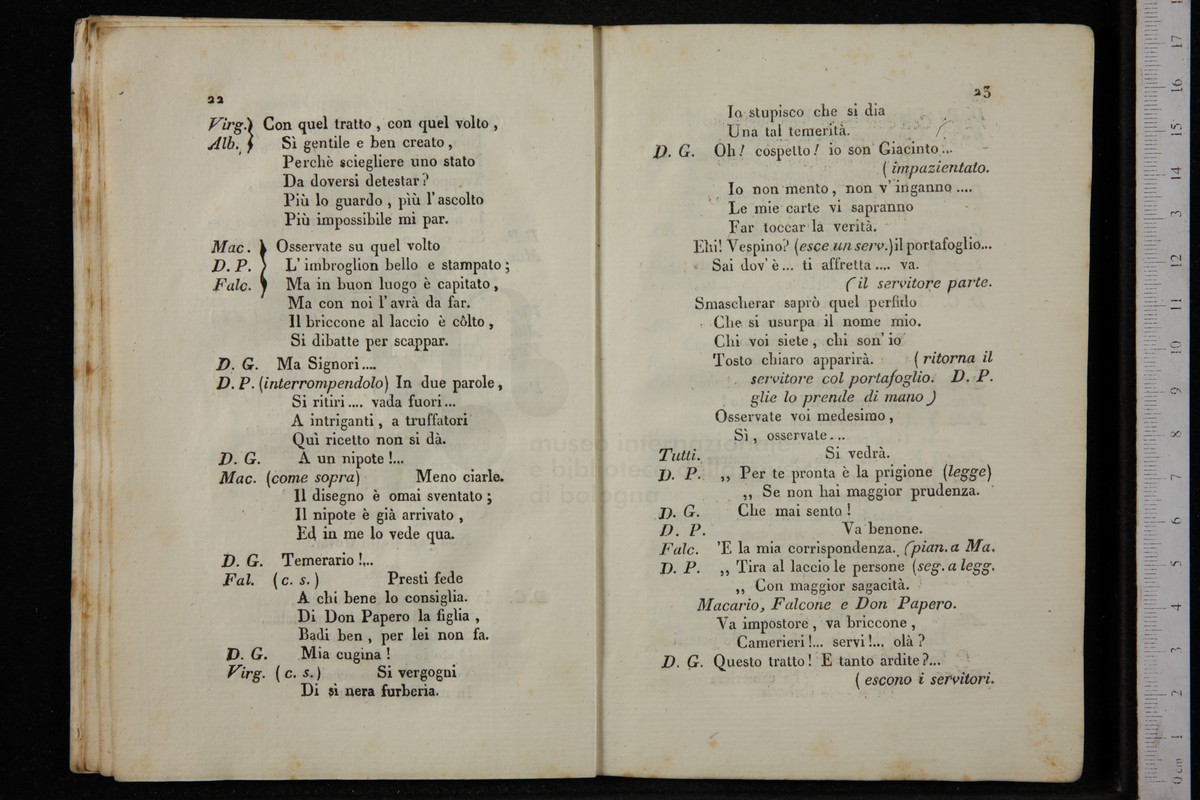 22
Virg.} Con quel tratto , con quel volto ,
Alb. } Sì gentile e ben creato ,
Perchè sciegliere uno stato
Da doversi detestar ?
Più lo guardo , più l' ascolto
Più impossibile mi par.
Mac. } Osservate su quel volto
D. P. } L' imbroglion bello e stampato ;
Falc. } Ma in buon luogo è capitato ,
Ma con noi l' avrà da far.
Il briccone al laccio è côlto ,
Si dibatte per scappar.
D. G. Ma Signori ....
D. P. (interrompendolo) In due parole ,
Si ritiri .... vada fuori ...
A intriganti , a truffatori
Quì ricetto non si dà.
D. G. A un nipote !...
Mac. (come sopra) Meno ciarle.
Il disegno è omai sventato ;
Il nipote è già arrivato ,
Ed in me lo vede qua.
D. G. Temerario !...
Fal. (c. s.) Presti fede
A chi bene lo consiglia.
Di Don Papero la figlia ,
Badi ben , per lei non fa.
D. G. Mia cugina !
Virg. (c. s.) Si vergogni
Di sì nera furberia.
23
Io stupisco che si dia
Una tal temerità.
D. G. Oh! cospetto! io son Giacinto ...
(impazientato.
Io non mento , non v' inganno ....
Le mie carte vi sapranno
Far toccar la verità.
Ehi! Vespino? (esce un serv.) il portafoglio...
Sai dov' è ... ti affretta .... va.
(il servitore parte.
Smascherar saprò quel perfido
Che si usurpa il nome mio.
Chi voi siete , chi son' io
Tosto chiaro apparirà. (ritorna il
servitore col portafoglio. D. P.
glie lo prende di mano)
Osservate voi medesimo ,
Sì , osservate ...
Tutti. Si vedrà.
D. P. ,, Per te pronta è la prigione (legge)
,, Se non hai maggior prudenza.
D. G. Che mai sento !
D. P. Va benone.
Falc. 'E la mia corrispondenza. (pian. a Ma.
D. P. ,, Tira al laccio le persone (seg. a legg.
,, Con maggior sagacità.
Macario, Falcone e Don Papero.
Va impostore , va briccone ,
Camerieri !... servi !... olà ?
D. G. Questo tratto ! E tanto ardite ?...
(escono i servitori.
museo internazionale
e biblioteca della
di bologna
0 cm 1 2 3 4 5 6 7 8 9 10 11 12 13 14 15 16 17